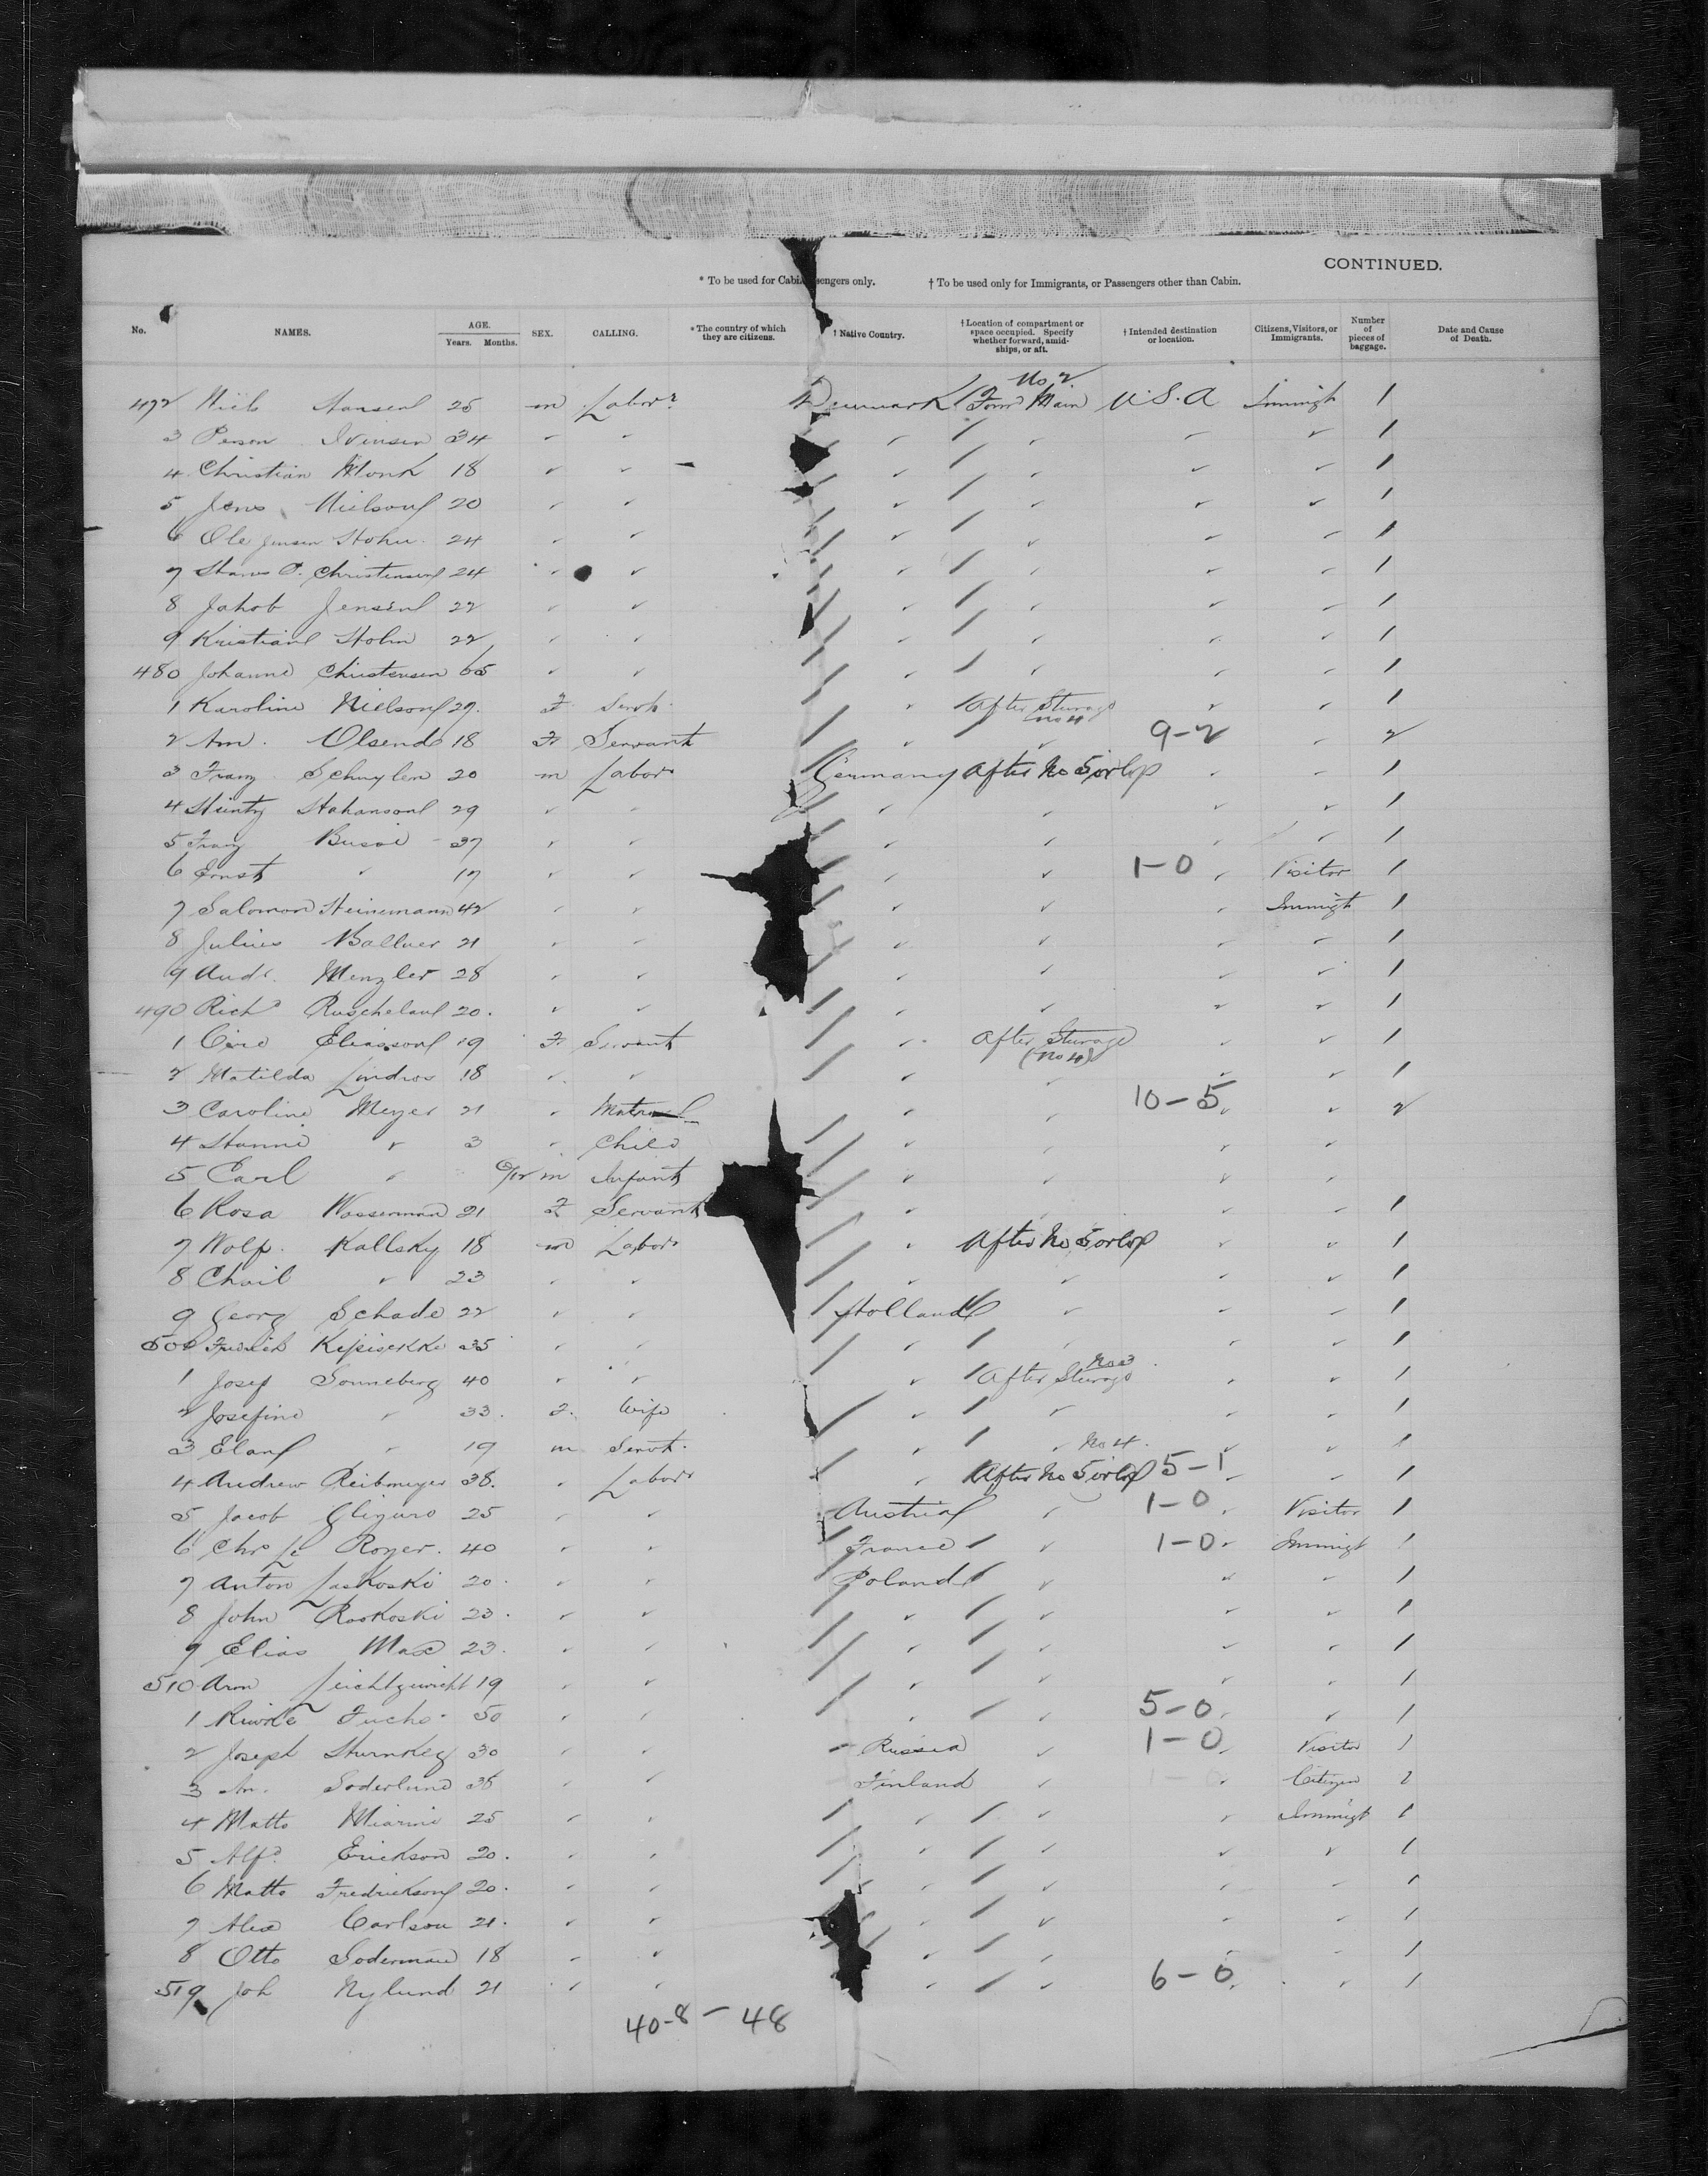 CONTINUED.
* To be used for Cabin Passengers only. † To be used only for Immigrants, or Passengers other than Cabin.
No. NAMES. AGE. Years. Months. SEX. CALLING. *The country of which they are citizens. † Native Country. †Location of compartment or space occupied. Specify whether forward, amidships, or aft. †Intended destination or location. Citizens, Visitors, or Immigrants. Number of pieces of baggage. Date and Cause of Death.
472 Niels Hansen 25 m Labor Denmark No 2 Forwd Main U.S.A Immigt 1
3 34 ✓ ✓ ✓ ✓ ✓ ✓ 1
4 Christian Monk 18 ✓ ✓ ✓ ✓ ✓ ✓ 1
5 Jens Nielson 20 ✓ ✓ ✓ ✓ ✓ ✓ 1
6 Ole Jensen Hohn 24 ✓ ✓ ✓ ✓ ✓ ✓ 1
7 Hans P. Christensen 24 ✓ ✓ ✓ ✓ ✓ ✓ 1
8 Jakob Jensen 22 ✓ ✓ ✓ ✓ ✓ ✓ 1
9 Kristian Hohn 22 ✓ ✓ ✓ ✓ ✓ ✓ 1
480 Johanne Christensen 65 ✓ ✓ ✓ ✓ ✓ ✓ 1
1 Karoline Nielson 29. F Servt. ✓ After Sterage No 4 ✓ ✓ 1
2 An. Olsend 18 F Servant ✓ ✓ 9-2 ✓ 2
3 Franz Schuylen 20 m Labor Germany After No 5 orlop ✓ ✓ 1
4 29 ✓ ✓ ✓ ✓ ✓ ✓ 1
5 Franz 37 ✓ ✓ ✓ ✓ ✓ ✓ 1
6 Ernst ✓ 17 ✓ ✓ ✓ ✓ 1-0 ✓ Visitor 1
7 Salomon Heinemann 42 ✓ ✓ ✓ ✓ ✓ Immigt 1
8 Julius Ballner 21 ✓ ✓ ✓ ✓ ✓ ✓ 1
9 Andr. Menzler 28 ✓ ✓ ✓ ✓ ✓ ✓ 1
490 Richd 20. ✓ ✓ ✓ ✓ ✓ ✓ 1
1 Eliasson 19 F Servant ✓ After Sterage (No 4) ✓ ✓ 1
2 Matilda Lindros 18 ✓ ✓ ✓ ✓ ✓ ✓ 1
3 Caroline Meyer 21 ✓ Matron ✓ ✓ 10-5 ✓ ✓ 2
4 Hanne ✓ 3 ✓ Child ✓ ✓ ✓ ✓
5 Carl ✓ m Infant ✓ ✓ ✓ ✓
6 Rosa Wasserman 21 F Servant ✓ ✓ ✓ ✓ 1
7 Wolf. Kallsky 18 m Labor ✓ After No 5 orlop ✓ ✓ 1
8 Chail ✓ 23 ✓ ✓ ✓ ✓ ✓ ✓ 1
9 Georg Schade 22 ✓ ✓ Holland ✓ ✓ ✓ 1
500 35 ✓ ✓ ✓ ✓ ✓ ✓ 1
1 Josef Sonneberg 40 ✓ ✓ ✓ After Sterage No 3 ✓ ✓ 1
2 Josefine ✓ 33. F. Wife ✓ ✓ ✓ ✓ 1
3 ✓ 19 m Servt. ✓ ✓ No 4. ✓ ✓ 1
4 Andrew Reibmeyer 38. ✓ Labor ✓ After No 5 orlop 5-1 ✓ ✓ 1
5 Jacob Gliguro 25 ✓ ✓ Austria ✓ 1-0 ✓ Visitor 1
6 Chr Le Royer. 40 ✓ ✓ France ✓ 1-0 ✓ Immigt 1
7 Anton Laskoski 20. ✓ ✓ Poland ✓ ✓ ✓ 1
8 John Raskoski 23. ✓ ✓ ✓ ✓ ✓ ✓ 1
9 Elias Max 23. ✓ ✓ ✓ ✓ ✓ ✓ 1
510 Aron Leichtgewicht 19 ✓ ✓ ✓ ✓ ✓ ✓ 1
1 Fuchs 50 ✓ ✓ ✓ ✓ 5-0 ✓ ✓ 1
2 Joseph 30 ✓ ✓ Russia ✓ 1-0 ✓ Visitor 1
3 An. Soderlund 38 ✓ ✓ Finland ✓ 1-0 ✓ Citizen 2
4 Matts 25 ✓ ✓ ✓ ✓ ✓ Immigt 1
5 Alfd Erickson 20. ✓ ✓ ✓ ✓ ✓ ✓ 1
6 Matts Fredrickson 20. ✓ ✓ ✓ ✓ ✓ ✓ 1
7 Alex Carlson 21. ✓ ✓ ✓ ✓ ✓ ✓ 1
8 Otto Soderman 18 ✓ ✓ ✓ ✓ ✓ ✓ 1
519 Joh Nylund 21 ✓ ✓ ✓ ✓ 6-0 ✓ ✓ 1
40-8-48